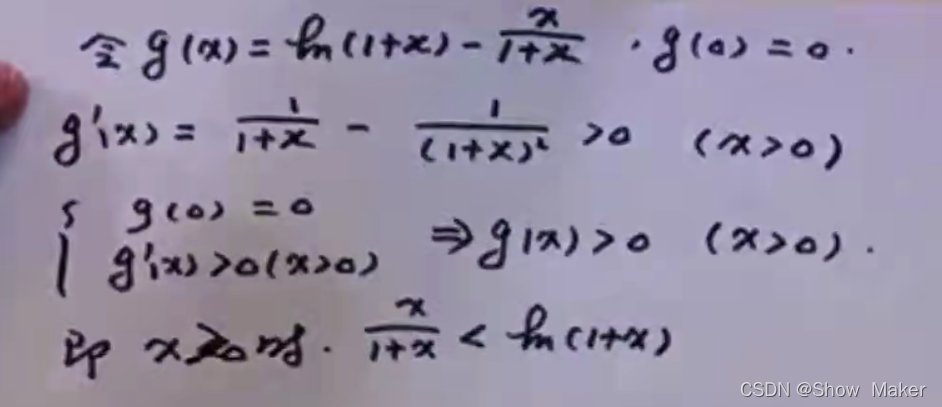 令 g(x) = ln(1+x) - x/(1+x) . g(0) = 0 .
g'(x) = 1/(1+x) - 1/(1+x)² >0 (x>0)
{ g(0) = 0
g'(x) >0(x>0) ⇒ g(x) >0 (x>0) .
即 x>0时. x/(1+x) < ln(1+x)
CSDN @Show Maker